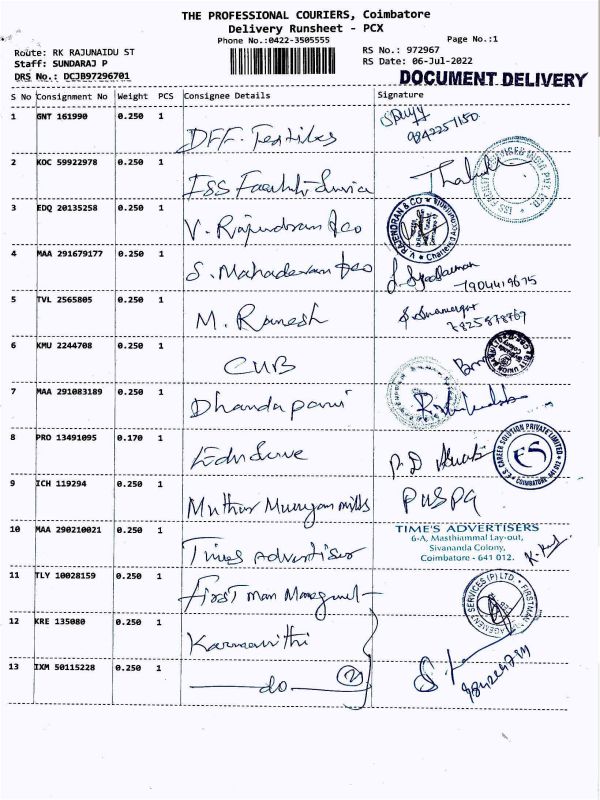 THE PROFESSIONAL COURIERS, Coimbatore
Delivery Runsheet - PCX
Phone No.:0422-3505555
Page No.:1
Route: RK RAJUNAIDU ST
RS No.: 972967
Staff: SUNDARAJ P
RS Date: 06-Jul-2022
DRS No.: DCJB97296701
DOCUMENT DELIVERY
S No Consignment No Weight PCS Consignee Details Signature
1 GNT 161990 0.250 1
DFF. Textiles
9842257150
2 KOC 59922978 0.250 1
ISS Facility Service
3 EDQ 20135258 0.250 1
V. Rajendran &co
V. RAJENDRAN & CO
4 MAA 291679177 0.250 1
S. Mahadevan &co
7904419675
5 TVL 2565805 0.250 1
M. Ramesh
7825878769
6 KMU 2244708 0.250 1
CUB
7 MAA 291083189 0.250 1
Dhandapani
8 PRO 13491095 0.170 1
EduServe
E.S. CAREER SOLUTION PRIVATE LIMITED
ES
COIMBATORE-641 012
9 ICH 119294 0.250 1
Muthur Murugan mills
PUSPA
10 MAA 290210021 0.250 1
Times Advertiser
TIME'S ADVERTISERS
6-A, Masthiammal Lay-out,
Sivananda Colony,
Coimbatore - 641 012.
11 TLY 10028159 0.250 1
First Man Managment
12 KRE 135080 0.250 1
Karmanithi
13 IXM 50115228 0.250 1
do
2